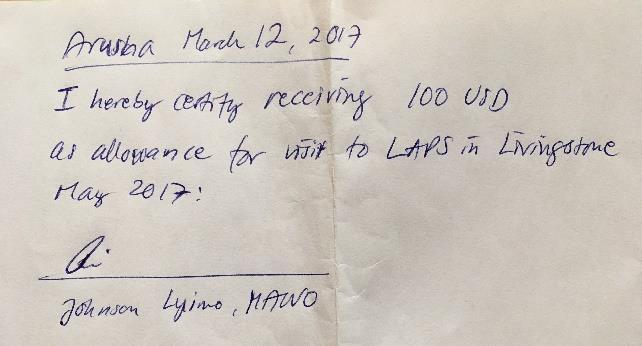 Arusha March 12, 2017
I hereby certify receiving 100 USD
as allowance for visit to LAPS in Livingstone
May 2017:
Johnson Lyimo, MAWO